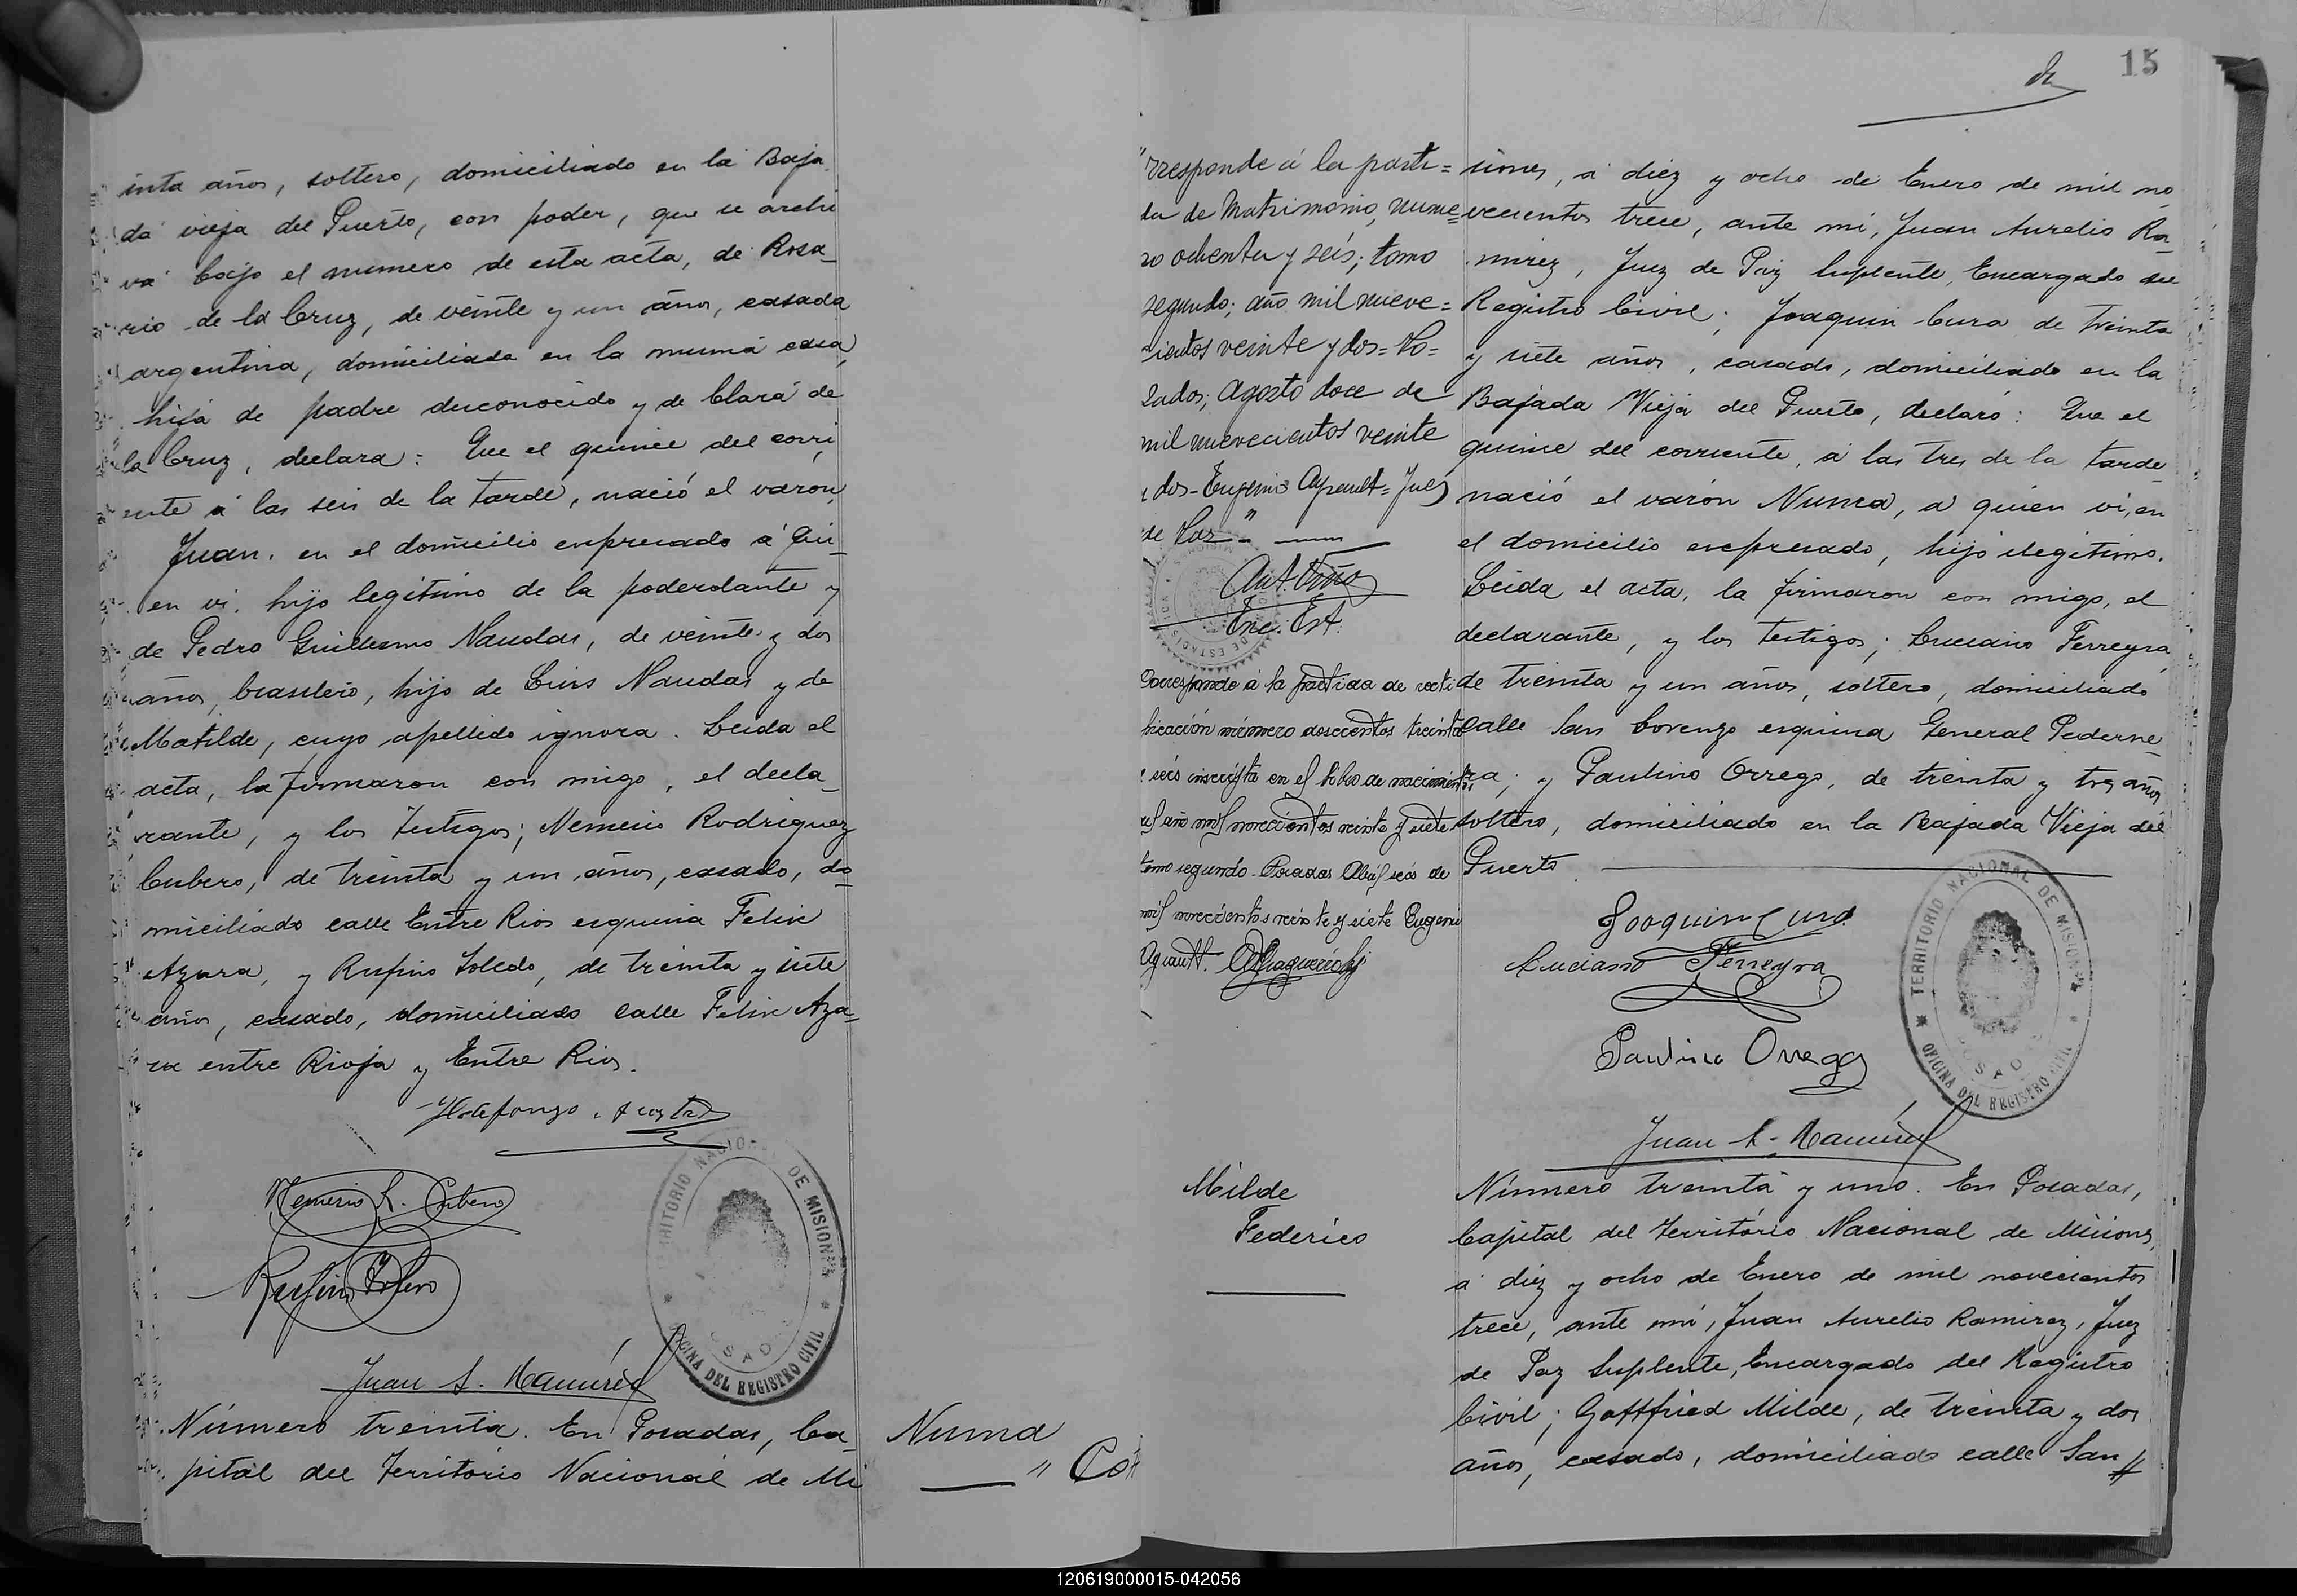 inta años, soltero, domiciliado en la Baja
da vieja del Puerto, con poder, que se archi
va bajo el numero de esta acta, de Rosa-
rio de la Cruz, de veinte y un años, casada
argentina, domiciliada en la misma casa,
hija de padre desconocido y de Clara de
la Cruz, declara: Que el quince del corri
ente á las seis de la tarde, nació el varón
Juan, en el domicilio expresado á qui-
en vi, hijo legítimo de la poderdante y
de Pedro Guillermo Naudas, de veinte y dos
años, brasilero, hijo de Luis Naudas y de
Matilde, cuyo apellido ignora. Leida el
acta, la firmaron con migo, el decla-
rante, y los testigos; Nemesio Rodriguez
Cubero, de treinta y un años, casado, do-
miciliado calle Entre Rios esquina Felix
Azara, y Rufino Toledo, de treinta y siete
años, casado, domiciliado calle Felix Aza-
ra entre Rioja y Entre Rios.
Ildefonso Acosta
Nemesio R. Cubero
Rufino Toledo
TERRITORIO NACIONAL DE MISIONES
OFICINA DEL REGISTRO CIVIL
Juan A. Ramírez
Número treinta. En Posadas, Ca-
pital del Territorio Nacional de Mi
Numa
" Co
15
rresponde á la parti=
da de Matrimonio, nume=
ro ochenta y seis; tomo
segundo; año mil nueve=
cientos veinte y dos= Po=
sadas; Agosto doce de
mil nuevecientos veinte
y dos- Eugenio Ayrault= Juez
de Paz"
Enc. Est.
Corresponde á la partida de recti
ficación número doscientos treinta
y seis inscripta en el libro de nacimientos
del año mil novecientos veinte y siete
tomo segundo. Posadas Abril seis de
mil novecientos veinte y siete Eugenio
Ayrault.
siones, á diez y ocho de Enero de mil no
vecientos trece, ante mi, Juan Aurelio Ra-
mirez, Juez de Paz Suplente, Encargado del
Registro Civil; Joaquin Cura de treinta
y siete años, casado, domiciliado en la
Bajada Vieja del Puerto, declaró: Que el
quince del corriente, á las tres de la tarde
nació el varón Numa, a quien vi, en
el domicilio expresado, hijo ilegitimo.
Leida el acta, la firmaron con migo, el
declarante, y los testigos; Luciano Ferreyra,
de treinta y un años, soltero, domiciliado
calle San Lorenzo esquina General Paderne
ra; y Paulino Orrego, de treinta y tres años,
soltero, domiciliado en la Bajada Vieja del
Puerto
Joaquin Cura
Luciano Ferreyra
Paulino Orrego
TERRITORIO NACIONAL DE MISIONES
OFICINA DEL REGISTRO CIVIL
Juan A. Ramírez
Milde
Federico
Número treinta y uno. En Posadas,
Capital del Territorio Nacional de Misiones,
a diez y ocho de Enero de mil novecientos
trece, ante mi, Juan Aurelio Ramirez, Juez
de Paz Suplente, Encargado del Registro
Civil; Gottfried Milde, de treinta y dos
años, casado, domiciliado calle San
120619000015-042056